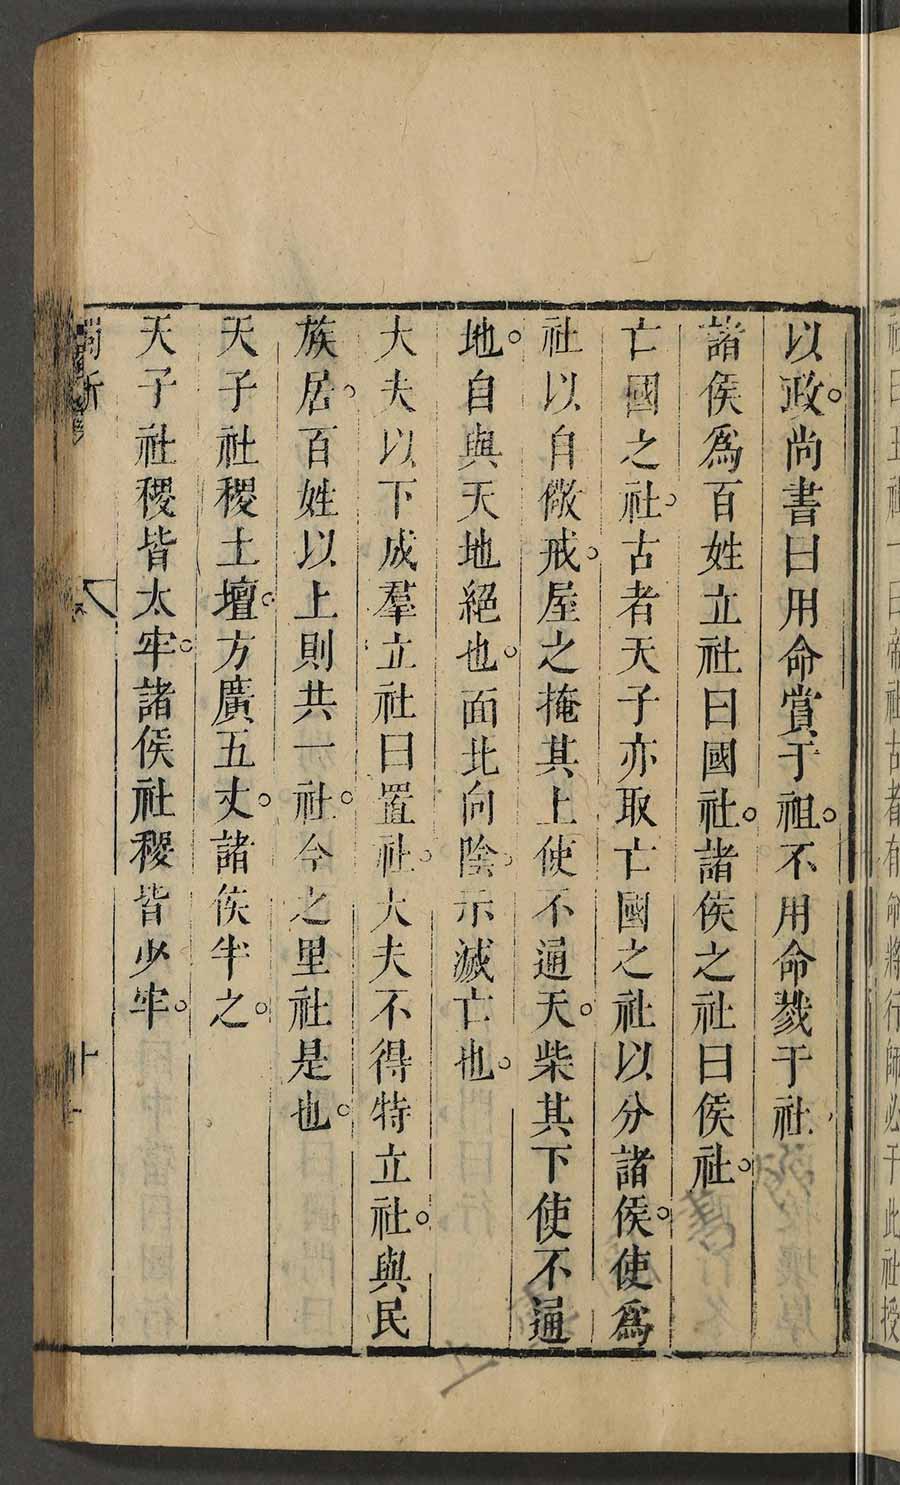 社曰五祀一曰帝社故者有命將行師必于此社授
以政。尚書曰用命賞于祖。不用命戮于社
諸侯爲百姓立社曰國社。諸侯之社曰侯社。
亡國之社。古者天子亦取亡國之社以分諸侯。使爲
社以自儆戒。屋之掩其上使不通天。柴其下使不通
地。自與天地絕也。面北向陰。示滅亡也。
大夫以下成羣立社曰置社。大夫不得特立社。與民
族居。百姓以上則共一社。今之里社是也。
天子社稷土壇。方廣五丈。諸侯半之。
天子社稷皆太牢。諸侯社稷皆少牢。
獨斷